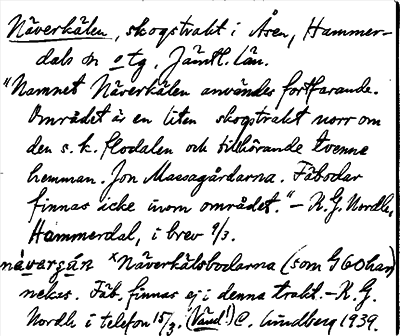 Näverkälen, skogstrakt i Åsen, Hammer-
dals sn o tg. Jämtl. län.
"Namnet Näverkälen användes fortfarande.
Området är en liten skogstrakt norr om
den s.k. flodalen och tillhörande tvenne
hemman. Jon Massagårdarna. Fäbodar
finnas icke inom området." – K.G. Nordh,
Hammerdal, i brev 9/3.
×Näverkälsbodarna (som GEO har)
nekas. Fäb. finnas ej i denna trakt. – K.G.
Nordh i telefon 15/3. (Vänd!) C. Lindberg 1939.